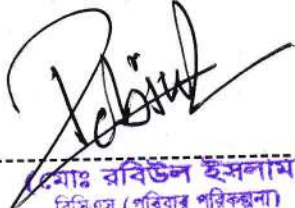 Robiul
(মোঃ রবিউল ইসলাম
বিসিএস (পরিবার পরিকল্পনা)